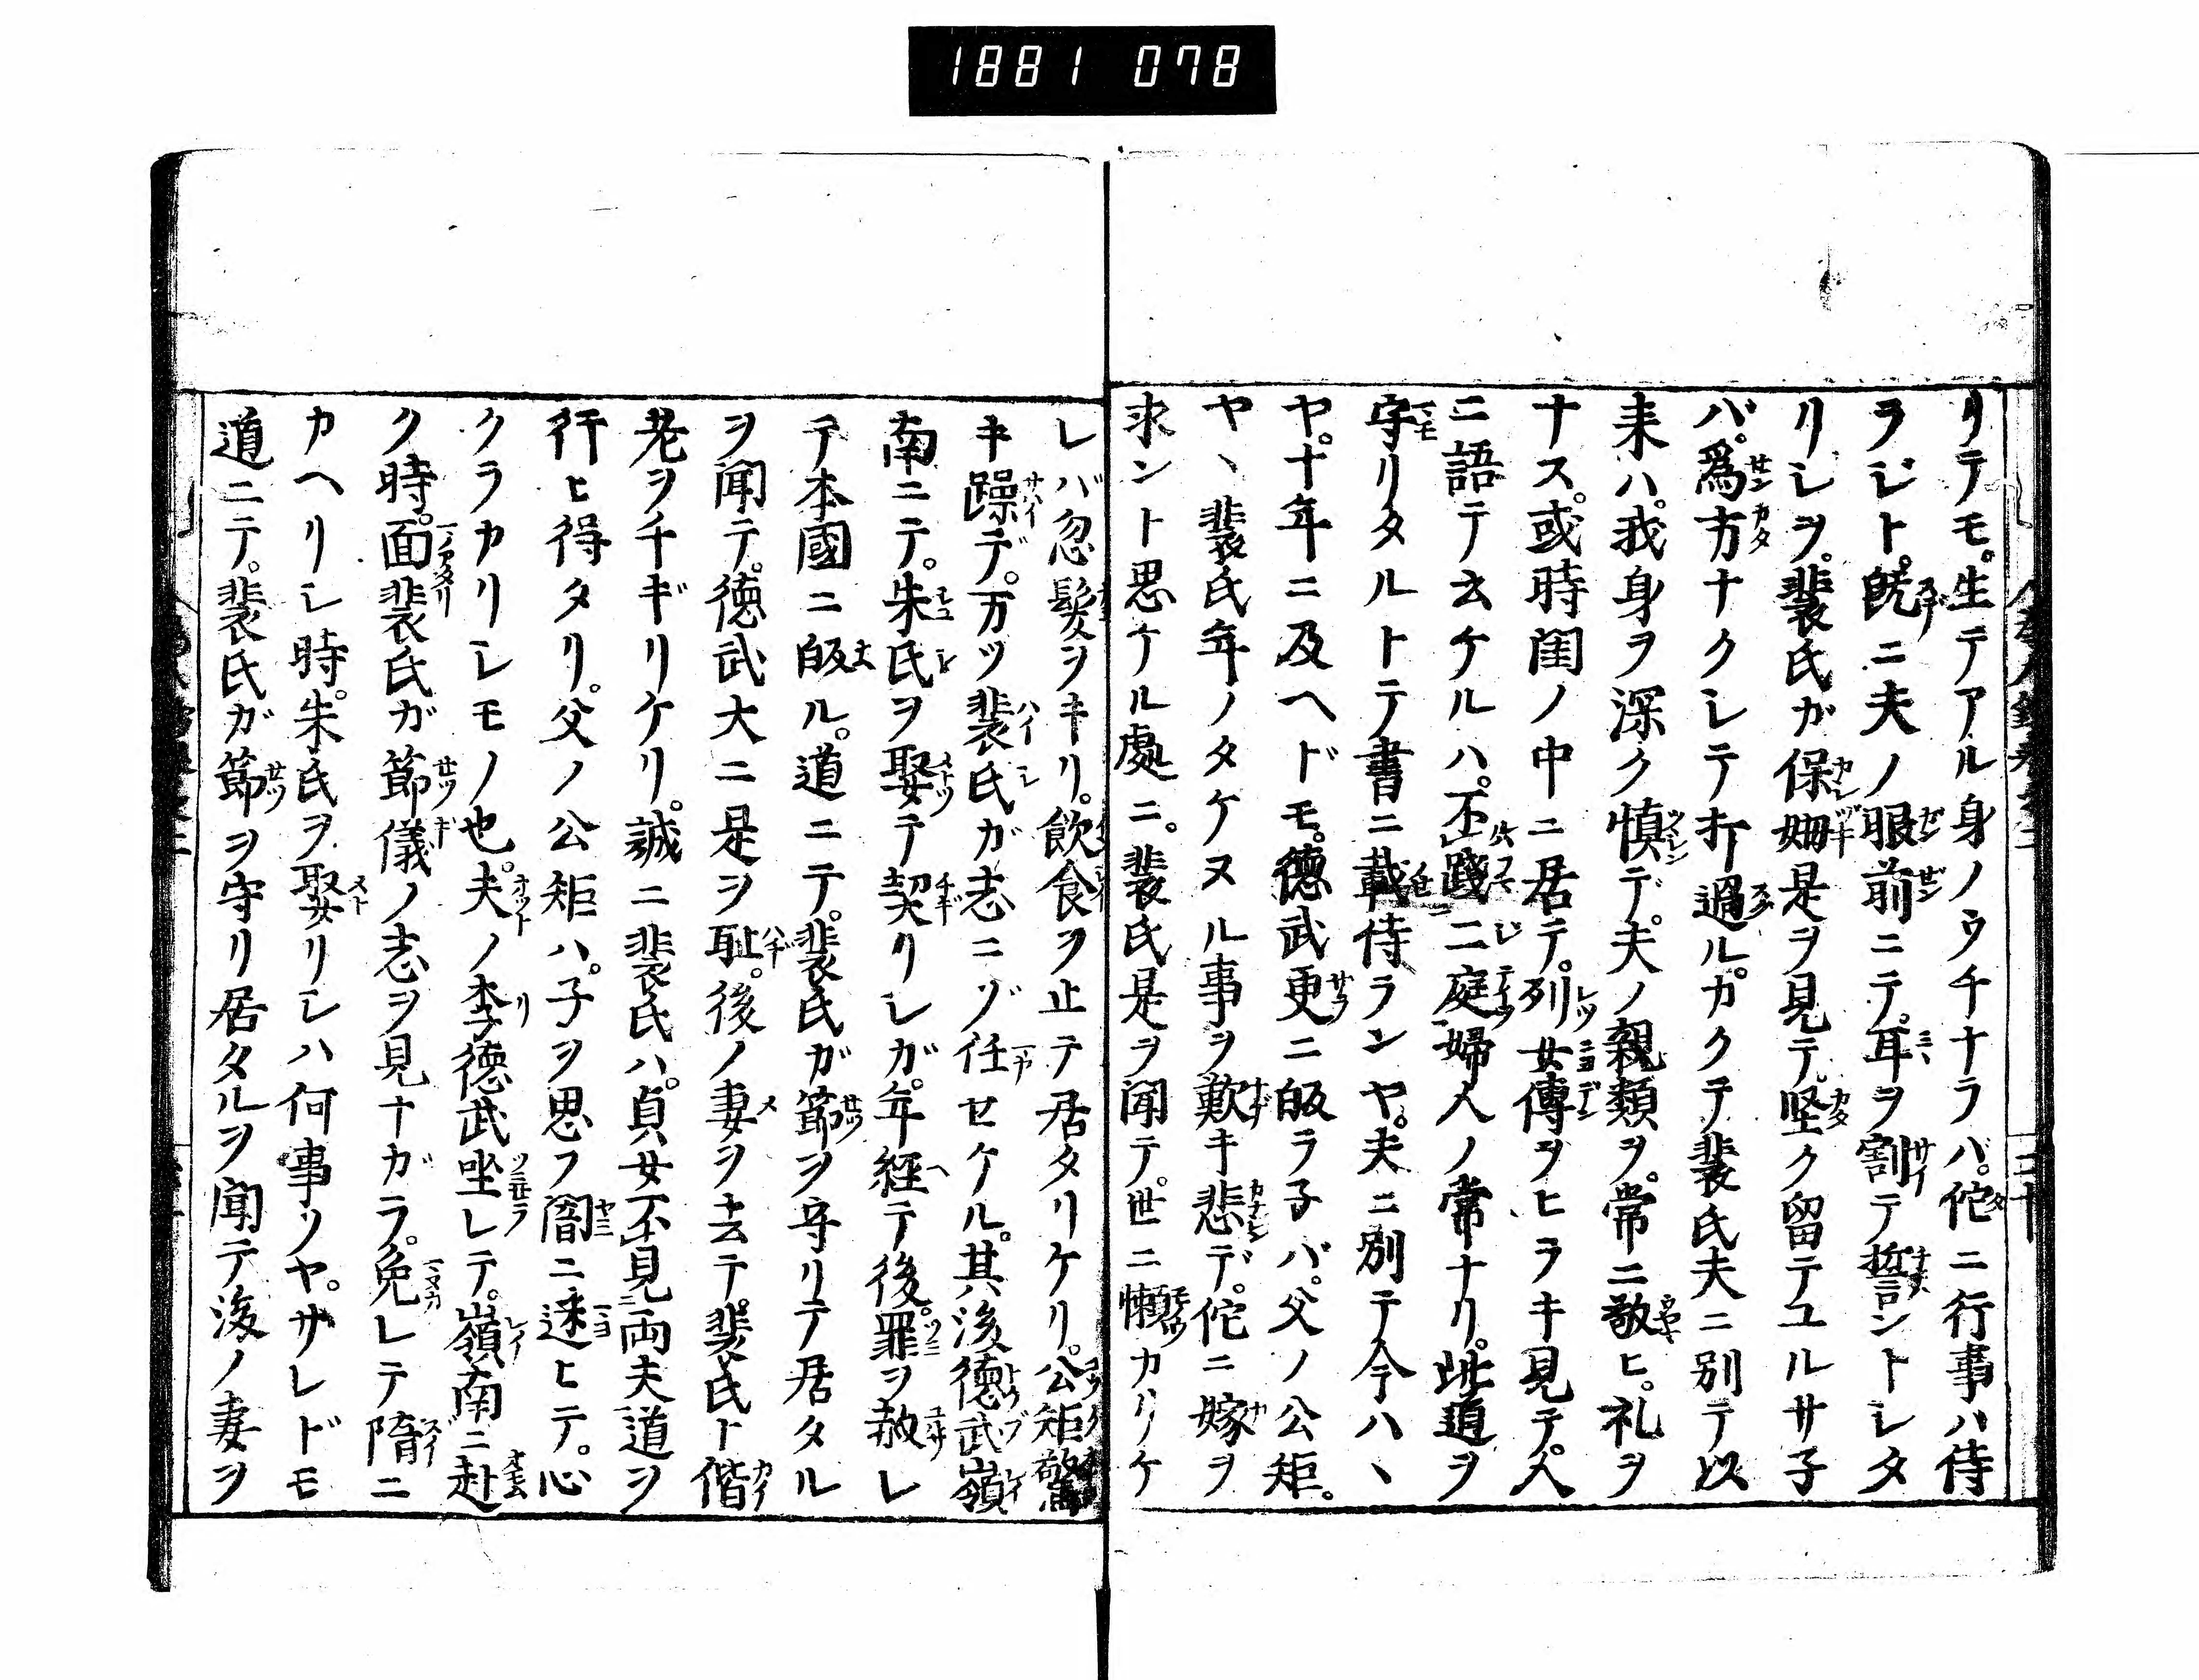 1881 078
リテモ。生テアル身ノウチナラバ。佗ニ行事ハ侍
ラジト。既ニ夫ノ眼前ニテ。耳ヲ割テ誓ントシタ
リシヲ。裴氏ガ保姆是ヲ見テ堅ク留テユルサ子
バ。為方ナクシテ打過ル。カクテ裴氏夫ニ別テ以
来ハ。我身ヲ深ク慎デ。夫ノ親類ヲ。常ニ敬ヒ。礼ヲ
ナス。或時閨ノ中ニ居テ。列女傳ヲヒラキ見テ。人
ニ語テ云ケルハ。不踐二庭婦人ノ常ナリ。此道ヲ
守リタルトテ書ニ載侍ランヤ。夫ニ別テ今ハヽ
ヤ。十年ニ及ヘドモ。德武更ニ皈ラ子バ。父ノ公矩。
ヤヽ裴氏年ノタケヌル事ヲ歎キ悲デ。佗ニ嫁ヲ
求ント思ケル處ニ。裴氏是ヲ聞テ。世ニ懶カリケ
レバ忽髮ヲキリ。飲食ヲ止テ居タリケリ。公矩驚
キ躁デ。万ツ裴氏ガ志ニゾ任セケル。其後德武嶺
南ニテ。朱氏ヲ娶テ契リシガ。年経テ後。罪ヲ赦レ
テ本國ニ皈ル。道ニテ。裴氏ガ節ヲ守リテ居タル
ヲ聞テ。德武大ニ是ヲ恥。後ノ妻ヲ去テ。裴氏ト偕
老ヲチギリケリ。誠ニ裴氏ハ。貞女不見両夫道ヲ
行ヒ得タリ。父ノ公矩ハ。子ヲ思フ闇ニ迷ヒテ。心
クラカリシモノ也。夫ノ李德武坐シテ。嶺南ニ赴
ク時。面裴氏ガ節儀ノ志ヲ見ナガラ。免レテ隋ニ
カヘリシ時。朱氏ヲ娶リシハ何事ソヤ。サレドモ
道ニテ。裴氏ガ節ヲ守リ居タルヲ聞テ後ノ妻ヲ